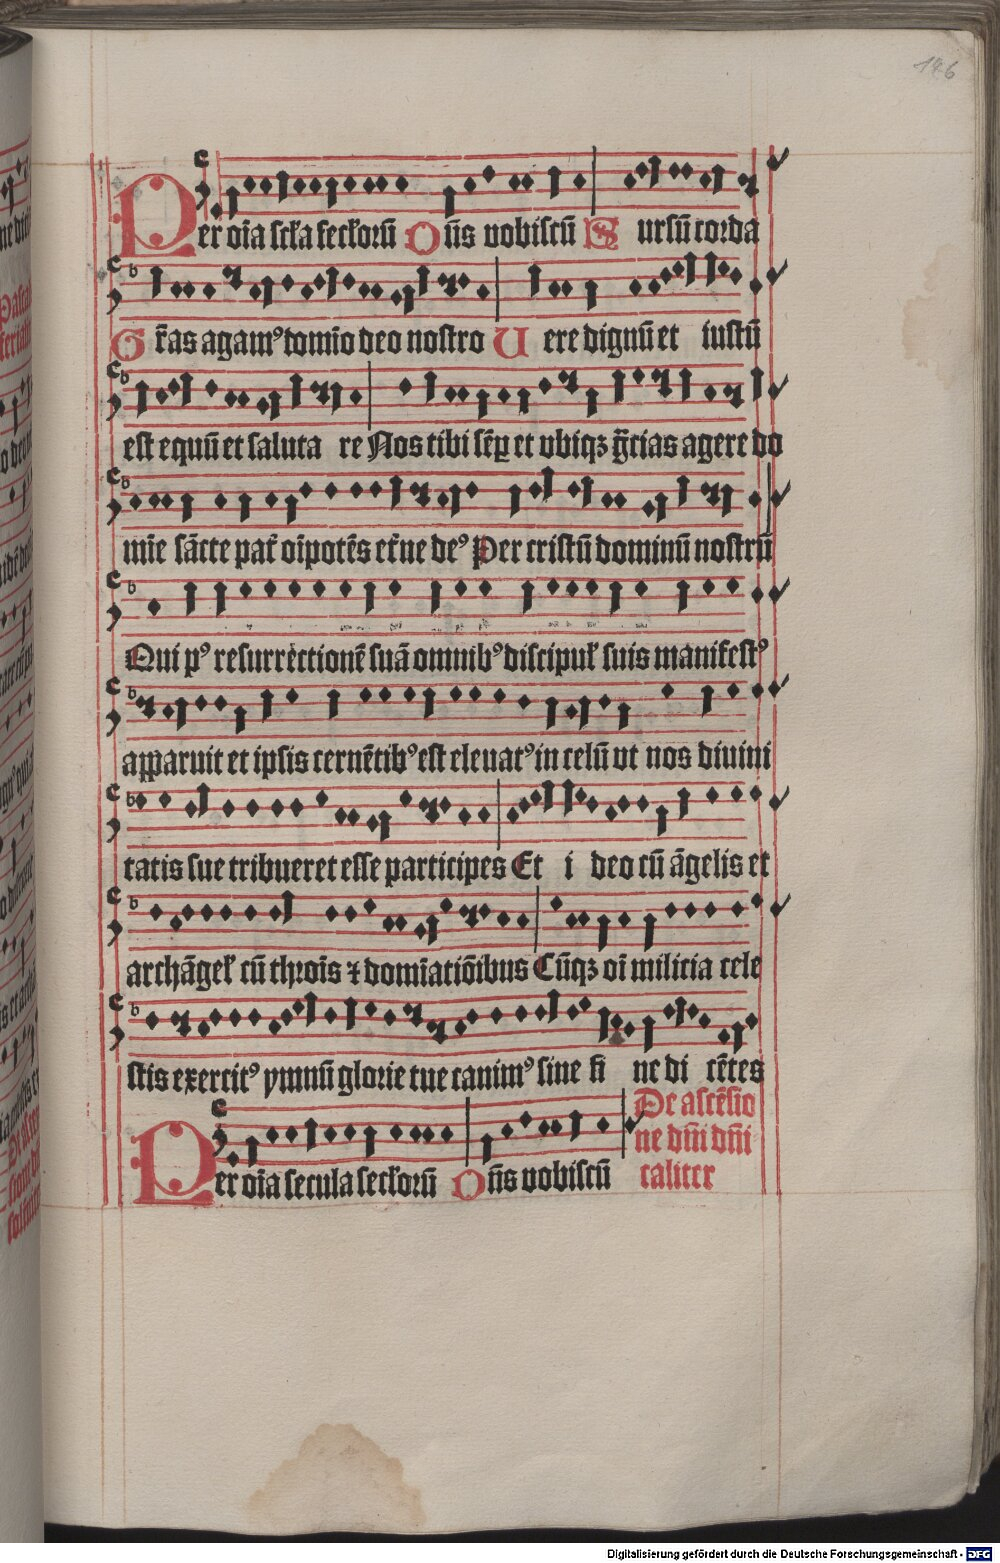 146
Per oīa scła secłorū Dn̄s vobiscū Sursū corda
Gr̄as agamꝰ domīo deo nostro Uere dignū et iustū
est equū et salutare Nos tibi sēꝑ et vbiqꝫ gr̄cias agere do
mīe sācte pat̄ oīpotēs et̄ne deꝰ Per cristū dominū nostrū
Qui pꝰ resurrectionē suā omnibꝰ discipuł suis manifestꝰ
apparuit et ipsis cernētibꝰ est eleuatꝰ in celū vt nos diuini
tatis sue tribueret esse participes Et ideo cū āgelis et
archāgeł cū throīs ⁊ domīatiōibus Cūqꝫ oī milicia cele
stis exercitꝰ ymnū glorie tue canimꝰ sine fine dicētes
De ascēsio
ne dn̄i dn̄i
caliter
Per oīa secula secłorū Dn̄s vobiscū
Digitalisierung gefördert durch die Deutsche Forschungsgemeinschaft - DFG